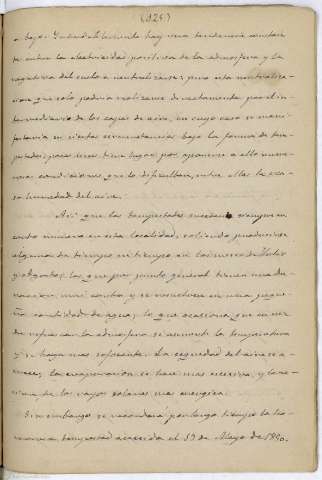 (125)
bajo. Indudablemente hay una tendencia constan-
te entre la electricidad positiva de la atmosfera y la
negativa del suelo a neutralizarse; pero esta neutraliza-
cion que solo podria realizarse directamente por el in-
termediario de las capas de aire, en cuyo caso se mani-
festaria en ciertas circunstancias bajo la forma de tem-
pestades; pocas veces tiene lugar por oponerse a ello nume-
rosas condiciones que lo dificultan, entre ellas la esca-
sa humedad del aire.
Asi que las tempestades suceden siempre en
corto número en esta localidad, soliendo producirse
alguna de tiempo en tiempo en los meses de Julio
y Agosto; las que por punto general tienen una du-
racion muy corta y se resuelven en una peque-
ña cantidad de agua; lo que ocasiona que en vez
de refrescar la atmosfera se aumente la temperatura
y se haga mas sofocante. La sequedad del aire
la evaporacion se hace mas escesiva y la ac-
cion de los rayos solares mas energica.
Sin embargo se recordará por largo tiempo la
tempestad acaecida el 19 de Mayo de